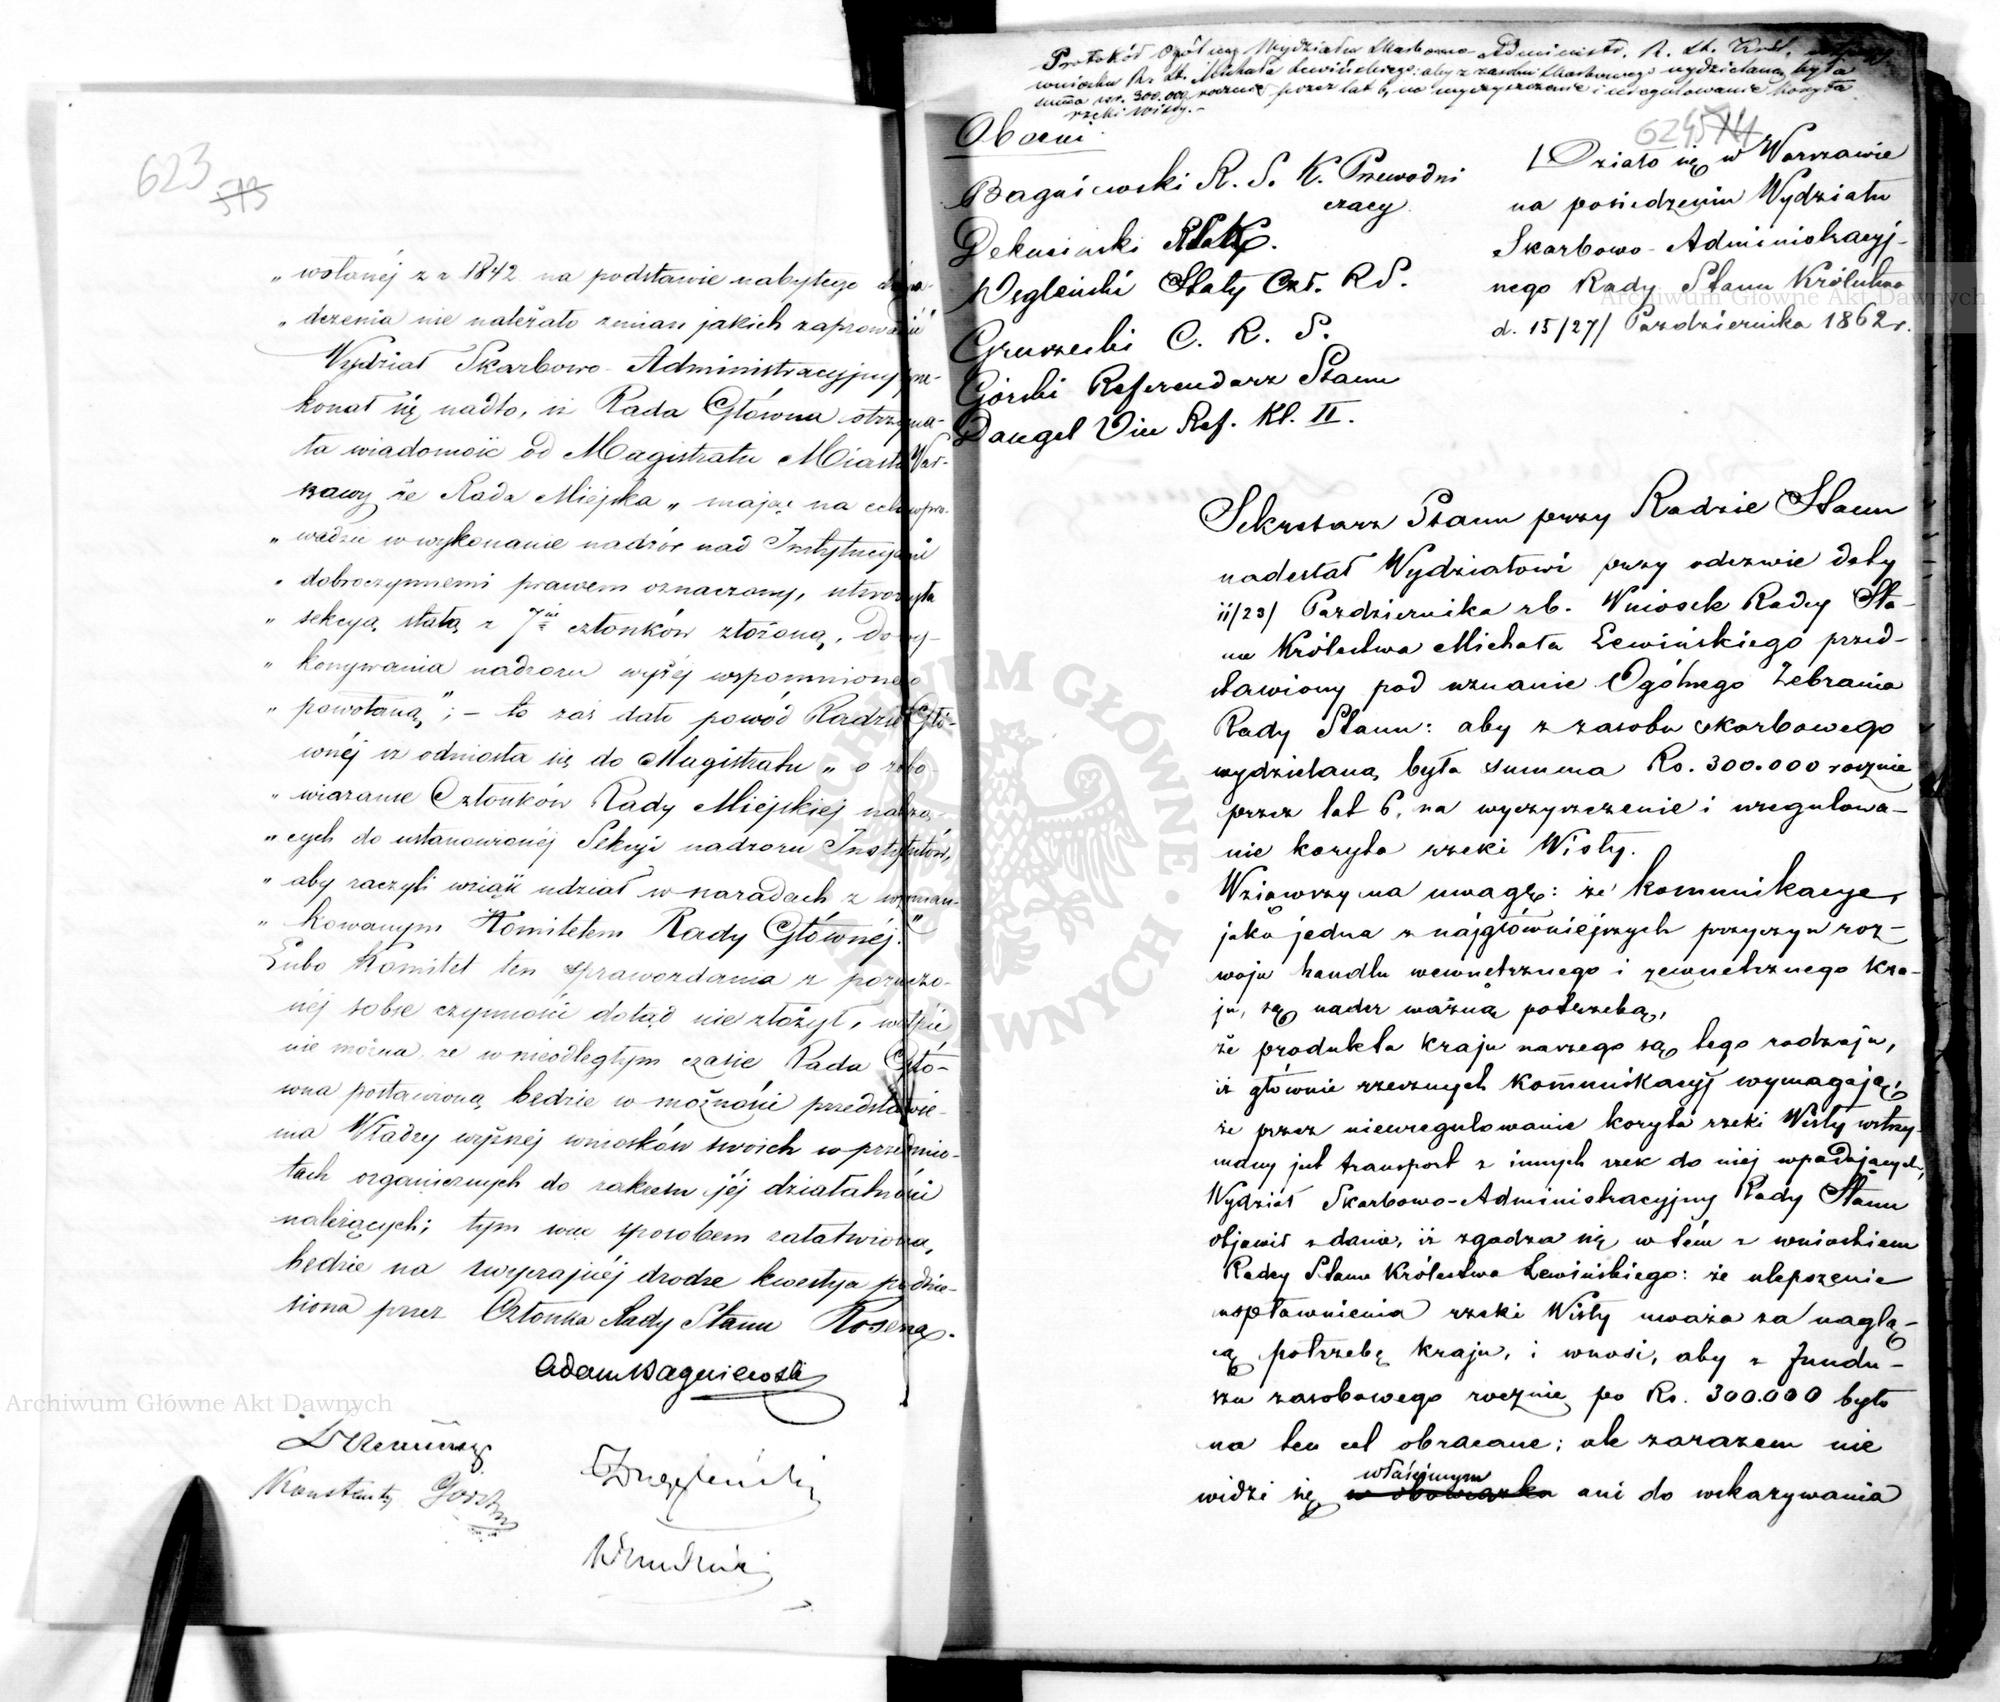 623
573
„ wołanéj z r. 1842 na podstawie nabytego
„ dczenia nie należało zmian jakich zaprowadzić"
Wydział Skarbowo-Administracyjny prze-
konał się nadto, iż Rada Główna otrzyma-
ła wiadomość od Magistratu Miasta War-
szawy że Rada Miejska „ mając na celu wpro-
„ wadzić w wykonanie nadzór nad Instytucyami
„ dobroczynnemi prawem oznaczony, utworzyła
„ sekcyą stałą z 7iu członków złożoną, do wy-
„ konywania nadzoru wyżéj wspomnionego
„ powołaną"; – to zaś dało powód Radzie Głó-
wnéj iż odniosła się do Magistratu „ o zobo-
„ wiązanie Członków Rady Miejskiej należą-
„ cych do ustanowionéj Sekcyi nadzoru Instytutów,
„ aby raczyli wziąść udział w naradach z wzmian-
„ kowanym Komitetem Rady Głównéj."
Lubo Komitet ten sprawozdania z poruczo-
néj sobie czynności dotąd nie złożył, wątpić
nie można, że w nieodległym czasie Rada Głó-
wna postawioną będzie w możności przedstawie-
nia Władzy wyższéj wniosków swoich w przedmio-
tach organicznych do zakresu jéj działalności
należących; tym więc sposobem załatwioną
będzie na zwyczajnéj drodze kwestya podnie-
siona przez Członka Rady Stanu Rosena.
Adam Bagniewski
Konstanty Górski
Węgleński
Archiwum Główne Akt Dawnych
Protokół Ogólny Wydziału Skarbowo-Administr. R. St. Król.
wniosku Rr. St. Michała Lewińskiego: aby z zasobu Skarbowego wydzielaną była
summa rsr. 300.000 rocznie przez lat 6, na wyczyszczenie i uregulowanie koryta
rzeki Wisły.–
624
Obecni
Bagniewski R. S. K. Przewodni
czący
Dekuciński
Węgleński Stały Czł. R S.
Gruszecki C. R. S.
Górski Referendarz Stanu
Dangel Vice Ref. Kl. II.
Działo się w Warszawie
na posiedzeniu Wydziału
Skarbowo-Administracyj-
nego Rady Stanu Królestwa
d. 15/27/ Października 1862 r.
Archiwum Główne Akt Dawnych
Sekretarz Stanu przy Radzie Stanu
nadesłał Wydziałowi przy odezwie daty
11/23/ Października r.b. Wniosek Radcy Sta-
nu Królestwa Michała Lewińskiego przed-
stawiony pod uznanie Ogólnego Zebrania
Rady Stanu: aby z zasobu skarbowego
wydzielaną była summa Rs. 300.000 rocznie
przez lat 6, na wyczyszczenie i uregulowa-
nie koryta rzeki Wisły.
Wziąwszy na uwagę: że komunikacye,
jako jedna z najgłówniejszych przyczyn roz-
woju handlu wewnętrznego i zewnętrznego kra-
ju, są nader ważną potrzebą,
że produkta kraju naszego są tego rodzaju,
iż głównie rzecznych kommunikacyj wymagają,
że przez nieuregulowanie koryta rzeki Wisły wstrzy-
many jest transport z innych rzek do niej wpadających,
Wydział Skarbowo-Administracyjny Rady Stanu
objawił zdanie, iż zgadza się w tém z wnioskiem
Radcy Stanu Królestwa Lewińskiego: że ulepszenie
uspławnienia rzeki Wisły uważa za naglą-
cą potrzebę kraju, i wnosi, aby z fundu-
szu zasobowego rocznie po Rs. 300.000 było
na ten cel obracane; ale zarazem nie
właściwym
widzi się w obowiązku ani do wskazywania
ARCHIWUM GŁÓWNE AKT DAWNYCH